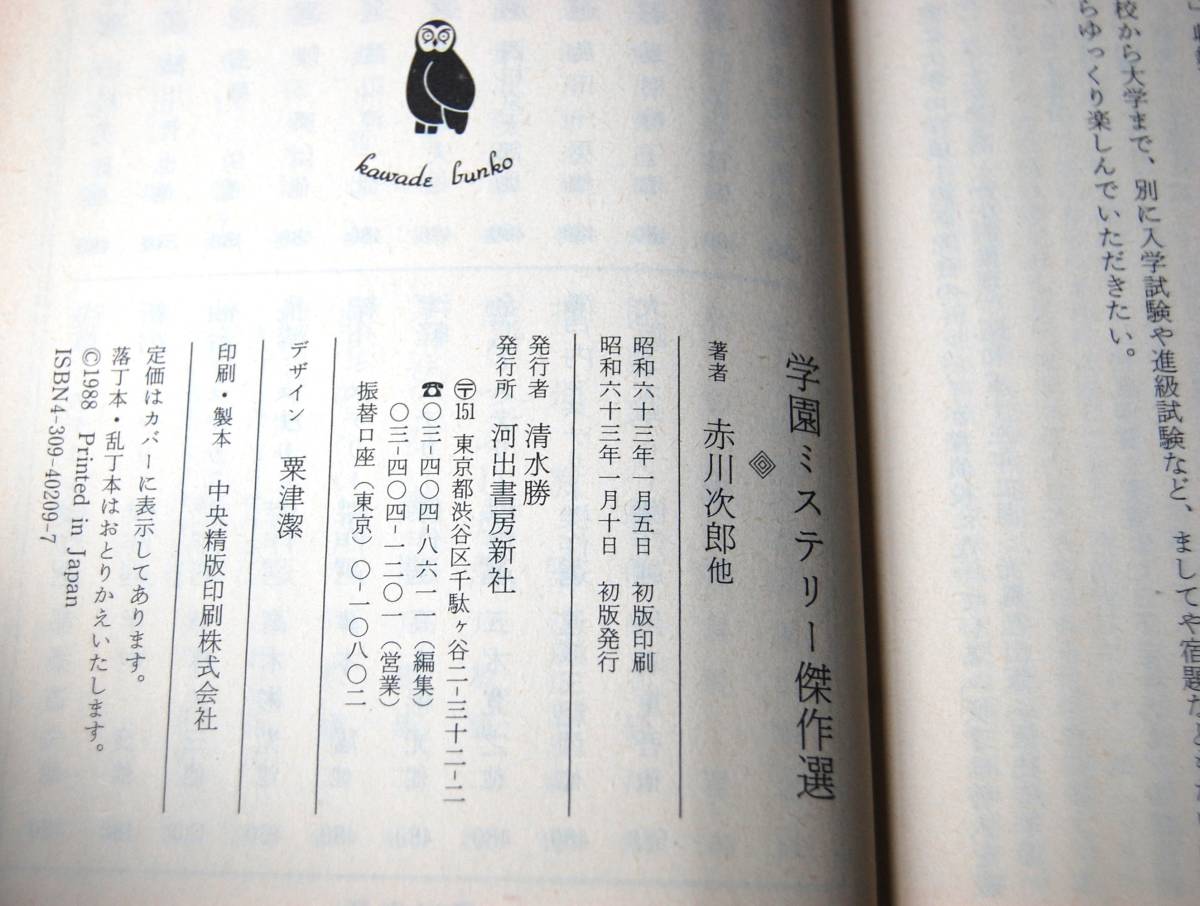 校から大学まで、別に入学試験や進級試験など、ましてや宿題などもない
らゆっくり楽しんでいただきたい。
kawade bunko
学園ミステリー傑作選
著者 赤川次郎他
昭和六十三年一月五日 初版印刷
昭和六十三年一月十日 初版発行
発行者 清水勝
発行所 河出書房新社
〒151 東京都渋谷区千駄ヶ谷二-三十二-二
☎〇三-四〇四-八六一一(編集)
〇三-四〇四-一二〇一(営業)
振替口座(東京)〇-一〇八〇二
デザイン 粟津潔
印刷・製本 中央精版印刷株式会社
定価はカバーに表示してあります。
落丁本・乱丁本はおとりかえいたします。
©1988 Printed in Japan
ISBN4-309-40209-7